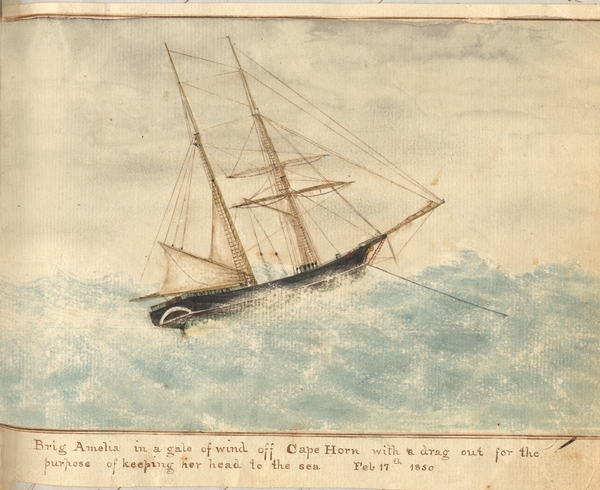 Brig Amelia in a gale of wind off Cape Horn with a drag out for the
purpose of keeping her head to the sea Feb 17th 1850